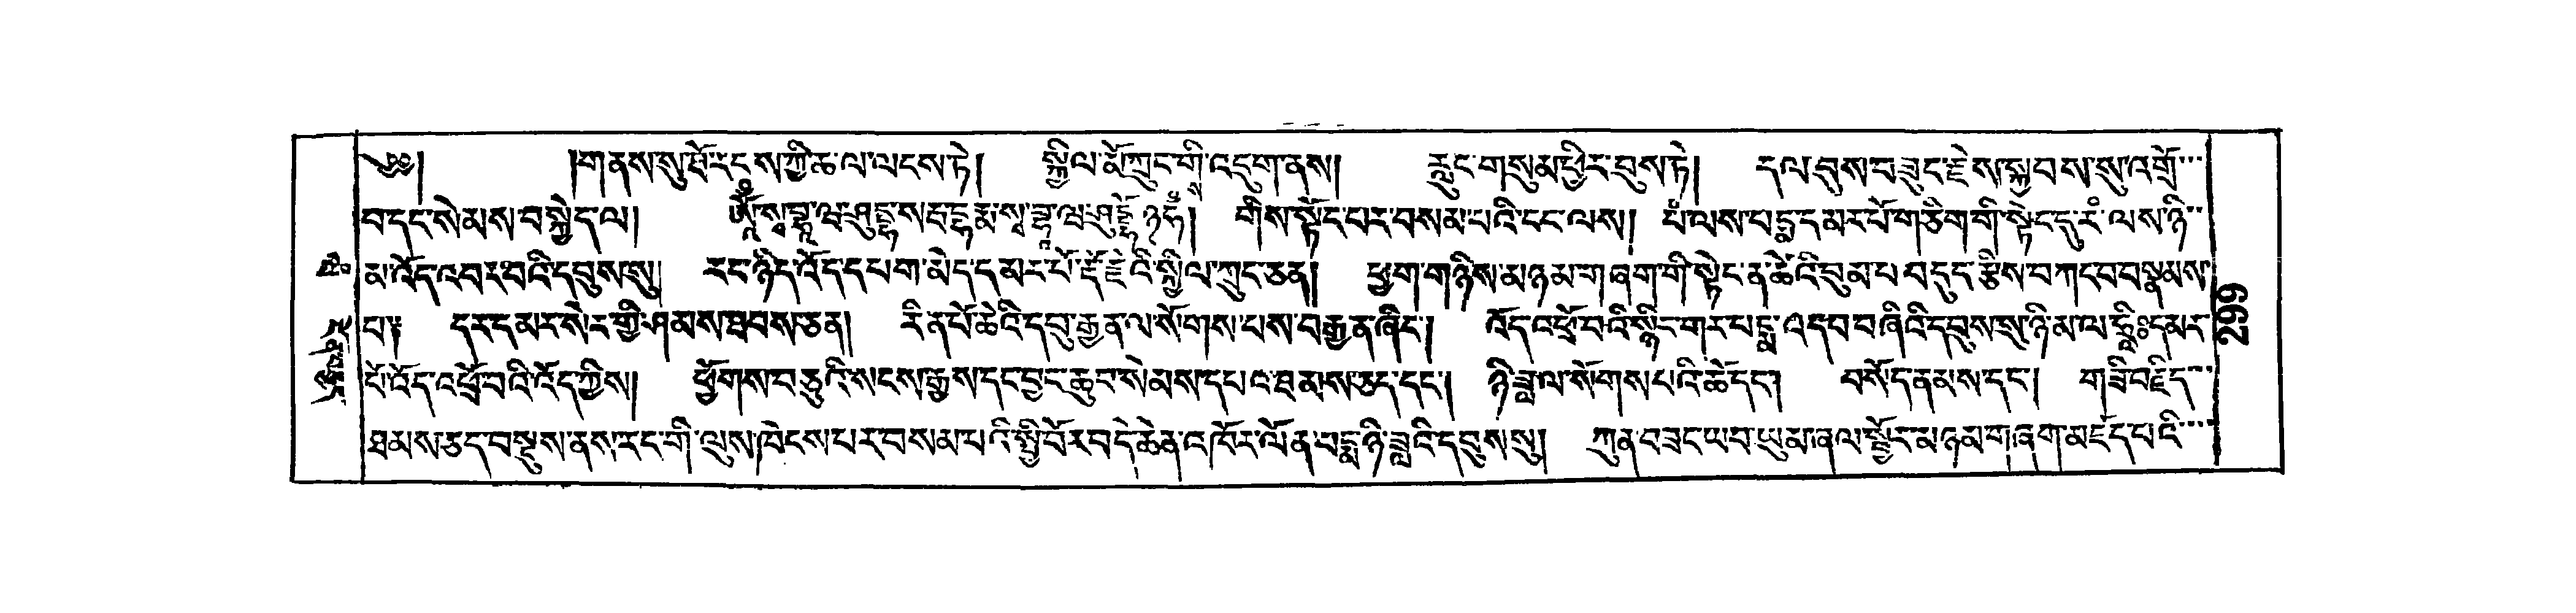 ༄༅། །གནས་སུ་ཐོ་རངས་ཀྱི་ཆ་ལ་ལངས་ཏེ། སྐྱིལ་མོ་ཀྲུང་གི་འདུག་ནས། རླུང་གསུམ་ཕྱིར་བུས་ཏེ། དལ་བུས་བཟུང་རྗེས་སྐྱབས་སུ་འགྲོ་
བ་དང་སེམས་བསྐྱེད་ལ། ཨོཾ་སྭ་བྷཱ་ཝ་ཤུདྡྷ་སརྦ་དྷརྨ་སྭ་བྷཱ་ཝ་ཤུདྡྷོ྅ཧཾ། གིས་སྟོང་པར་བསམ་པའི་ངང་ལས། པཾ་ལས་པདྨ་དམར་པོ་གཅིག་གི་སྟེང་དུ་རཾ་ལས་ཉི་
མ་འོད་འབར་བའི་དབུས་སུ། རང་ཉིད་འོད་དཔག་མེད་དམར་པོ་རྡོ་རྗེའི་སྐྱིལ་ཀྲུང་ཅན། ཕྱག་གཉིས་མཉམ་གཞག་གི་སྟེང་ན་ཚེའི་བུམ་པ་བདུད་རྩིས་བཀང་བ་བསྣམས་
པ། དར་དམར་སེར་གྱི་ཤམས་ཐབས་ཅན། རིན་པོ་ཆེའི་དབུ་རྒྱན་ལ་སོགས་པས་བརྒྱན་ཞིང་། འོད་འཕྲོ་བའི་སྙིང་གར་པདྨ་འདབ་བཞིའི་དབུས་སུ་ཉི་མ་ལ་ཧྲཱིཿདམར་
པོ་འོད་འཕྲོ་བའི་འོད་ཀྱིས། ཕྱོགས་བཅུའི་སངས་རྒྱས་དང་བྱང་ཆུབ་སེམས་དཔའ་ཐམས་ཅད་དང་། ཉི་ཟླ་ལ་སོགས་པའི་ཚེ་དང་། བསོད་ནམས་དང་། གཟི་བརྗིད་
ཐམས་ཅད་བསྡུས་ནས་རང་གི་ལུས་ཁེངས་པར་བསམ་པའི་སྤྱི་བོར་བདེ་ཆེན་འཁོར་ལོ་ན་པདྨ་ཉི་ཟླའི་དབུས་སུ། ཀུན་བཟང་ཡབ་ཡུམ་ཞལ་སྦྱོར་མཉམ་གཞག་མཛད་པའི་